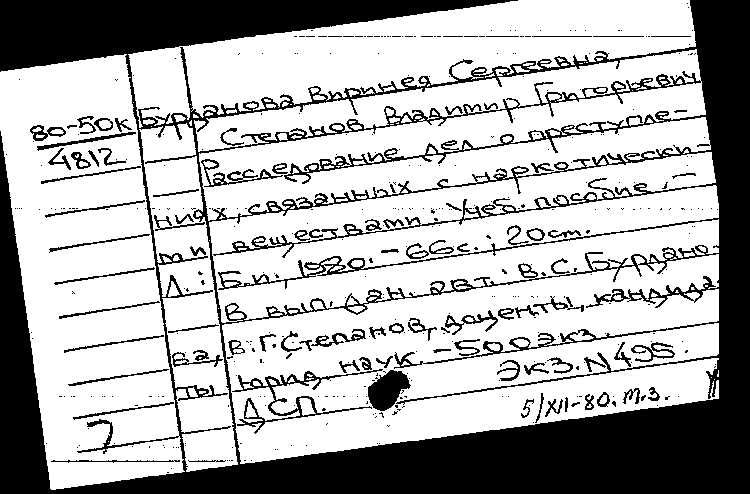 80-50к
4812
Бурданова, Виринея Сергеевна,
Степанов, Владимир Григорьевич
Расследование дел о преступле-
ниях, связанных с наркотически-
ми веществами: Учеб. пособие. -
Л.: Б.и., 1980. - 66с.; 20см.
В вып. дан. авт.: В.С. Бурдано-
ва, В.Г. Степанов, доценты, кандида-
ты юрид. наук. - 500 экз.
ДСП. Экз. N 495.
7 5/XII-80. М.З.